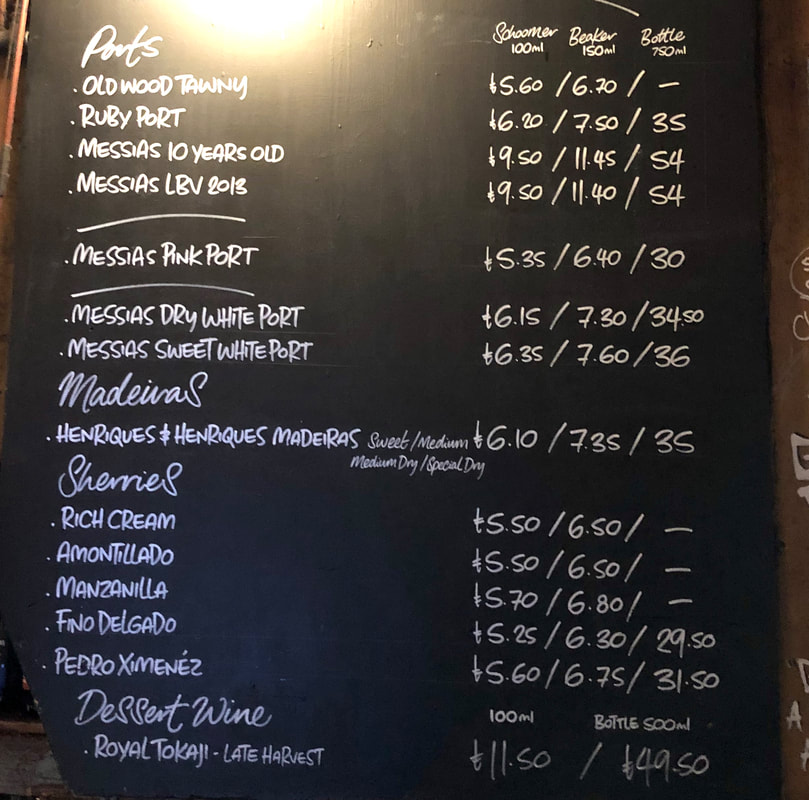 Ports Schoomer Beaker Bottle
100ml 150ml 750ml
. OLD WOOD TAWNY £5.60 / 6.70 / —
. RUBY PORT £6.20 / 7.50 / 35
. MESSIAS 10 YEARS OLD £9.50 / 11.45 / 54
. MESSIAS LBV 2013 £9.50 / 11.40 / 54
. MESSIAS PINK PORT £5.35 / 6.40 / 30
. MESSIAS DRY WHITE PORT £6.15 / 7.30 / 34.50
. MESSIAS SWEET WHITE PORT £6.35 / 7.60 / 36
Madeiras
. HENRIQUES & HENRIQUES MADEIRAS Sweet / Medium £6.10 / 7.35 / 35
Medium Dry / Special Dry
Sherries
. RICH CREAM £5.50 / 6.50 / —
. AMONTILLADO £5.50 / 6.50 / —
. MANZANILLA £5.70 / 6.80 / —
. FINO DELGADO £5.25 / 6.30 / 29.50
. PEDRO XIMENÉZ £5.60 / 6.75 / 31.50
Dessert Wine 100ml BOTTLE 500ml
. ROYAL TOKAJI - LATE HARVEST £11.50 / £49.50